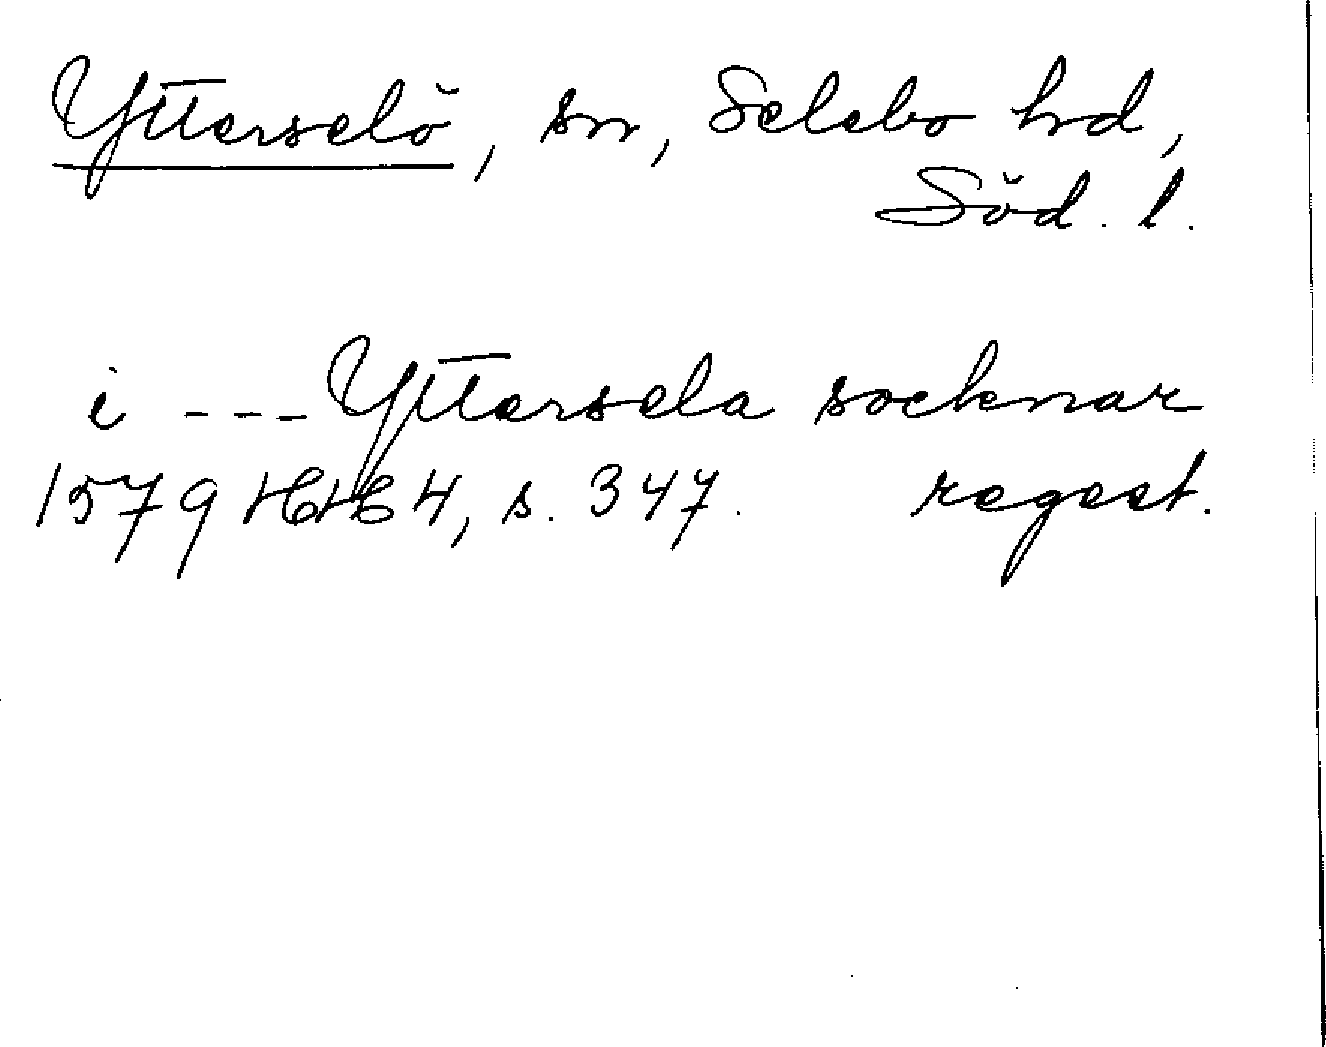 Ytterselö, sn, Selebo hrd,
Söd. l.
i --- Yttersela socknar
1579 HH 4, s. 347. regest.